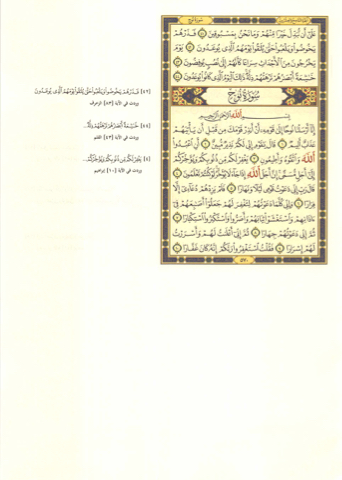 عَلَىٰٓ أَن نُّبَدِّلَ خَيْرًا مِّنْهُمْ وَمَا نَحْنُ بِمَسْبُوقِينَ ٤١ فَذَرْهُمْ
يَخُوضُوا۟ وَيَلْعَبُوا۟ حَتَّىٰ يُلَٰقُوا۟ يَوْمَهُمُ ٱلَّذِى يُوعَدُونَ ٤٢ يَوْمَ
يَخْرُجُونَ مِنَ ٱلْأَجْدَاثِ سِرَاعًا كَأَنَّهُمْ إِلَىٰ نُصُبٍ يُوفِضُونَ ٤٣
خَٰشِعَةً أَبْصَٰرُهُمْ تَرْهَقُهُمْ ذِلَّةٌ ذَٰلِكَ ٱلْيَوْمُ ٱلَّذِى كَانُوا۟ يُوعَدُونَ ٤٤
سُورَةُ نُوحٍ
بِسْمِ ٱللَّهِ ٱلرَّحْمَٰنِ ٱلرَّحِيمِ
إِنَّآ أَرْسَلْنَا نُوحًا إِلَىٰ قَوْمِهِۦٓ أَنْ أَنذِرْ قَوْمَكَ مِن قَبْلِ أَن يَأْتِيَهُمْ
عَذَابٌ أَلِيمٌ ١ قَالَ يَٰقَوْمِ إِنِّى لَكُمْ نَذِيرٌ مُّبِينٌ ٢ أَنِ ٱعْبُدُوا۟
ٱللَّهَ وَٱتَّقُوهُ وَأَطِيعُونِ ٣ يَغْفِرْ لَكُم مِّن ذُنُوبِكُمْ وَيُؤَخِّرْكُمْ
إِلَىٰٓ أَجَلٍ مُّسَمًّى إِنَّ أَجَلَ ٱللَّهِ إِذَا جَآءَ لَا يُؤَخَّرُ لَوْ كُنتُمْ تَعْلَمُونَ ٤
قَالَ رَبِّ إِنِّى دَعَوْتُ قَوْمِى لَيْلًا وَنَهَارًا ٥ فَلَمْ يَزِدْهُمْ دُعَآءِىٓ إِلَّا
فِرَارًا ٦ وَإِنِّى كُلَّمَا دَعَوْتُهُمْ لِتَغْفِرَ لَهُمْ جَعَلُوٓا۟ أَصَٰبِعَهُمْ فِىٓ
ءَاذَانِهِمْ وَٱسْتَغْشَوْا۟ ثِيَابَهُمْ وَأَصَرُّوا۟ وَٱسْتَكْبَرُوا۟ ٱسْتِكْبَارًا ٧
ثُمَّ إِنِّى دَعَوْتُهُمْ جِهَارًا ٨ ثُمَّ إِنِّىٓ أَعْلَنتُ لَهُمْ وَأَسْرَرْتُ
لَهُمْ إِسْرَارًا ٩ فَقُلْتُ ٱسْتَغْفِرُوا۟ رَبَّكُمْ إِنَّهُۥ كَانَ غَفَّارًا ١٠
٥٧٠
[٤٢] فَذَرْهُمْ يَخُوضُوا۟ وَيَلْعَبُوا۟ حَتَّىٰ يُلَٰقُوا۟ يَوْمَهُمُ ٱلَّذِى يُوعَدُونَ
وردت في الآية [٨٣] الزخرف
[٤٤] خَٰشِعَةً أَبْصَٰرُهُمْ تَرْهَقُهُمْ ذِلَّةٌ...
وردت في الآية [٤٣] القلم
[٤] يَغْفِرْ لَكُم مِّن ذُنُوبِكُمْ وَيُؤَخِّرْكُمْ...
وردت في الآية [١٠] إبراهيم